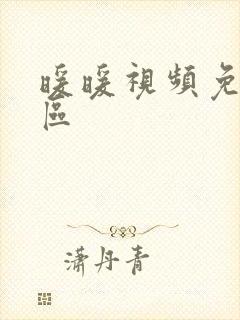 暖暖視頻免
區
瀟丹青